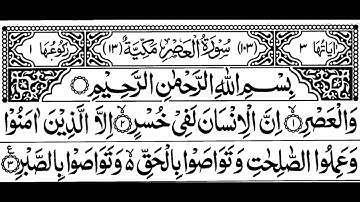 اٰیَاتُهَا ٣ (١٠٣) سُوْرَةُ الْعَصْرِ مَكِّیَّةٌ (١٣) رُكُوْعُهَا ١
بِسْمِ اللّٰهِ الرَّحْمٰنِ الرَّحِیْمِ
وَالْعَصْرِۙ۝١ اِنَّ الْاِنْسَانَ لَفِیْ خُسْرٍۙ۝٢ اِلَّا الَّذِیْنَ اٰمَنُوْا
وَعَمِلُوا الصّٰلِحٰتِ وَتَوَاصَوْا بِالْحَقِّ ۙ۬ وَتَوَاصَوْا بِالصَّبْرِ۝٣ ع